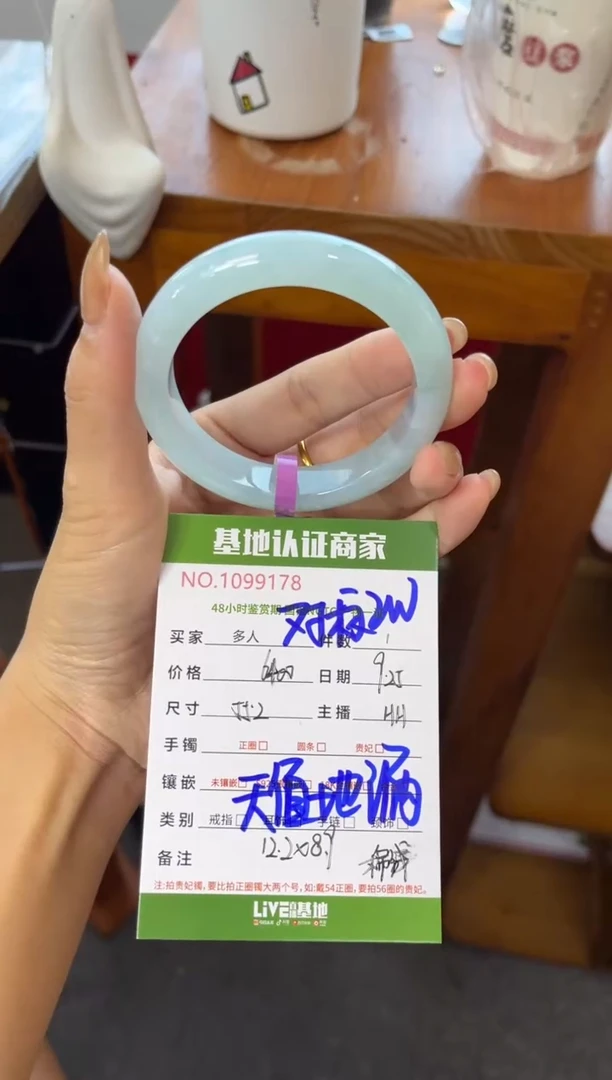 基地认证商家
NO.1099178
48小时鉴赏期
对标2W
买家 多人 件数 1
价格 6400 日期 9.25
尺寸 55.2 主播 HH
手镯 正圈 圆条 贵妃
镶嵌 未镶嵌
天值地漏
类别 戒指
备注 12.2×8.9
注:拍贵妃镯,要比拍正圈镯大两个号,如:戴54正圈,要拍56圈的贵妃。
LIVE直播基地